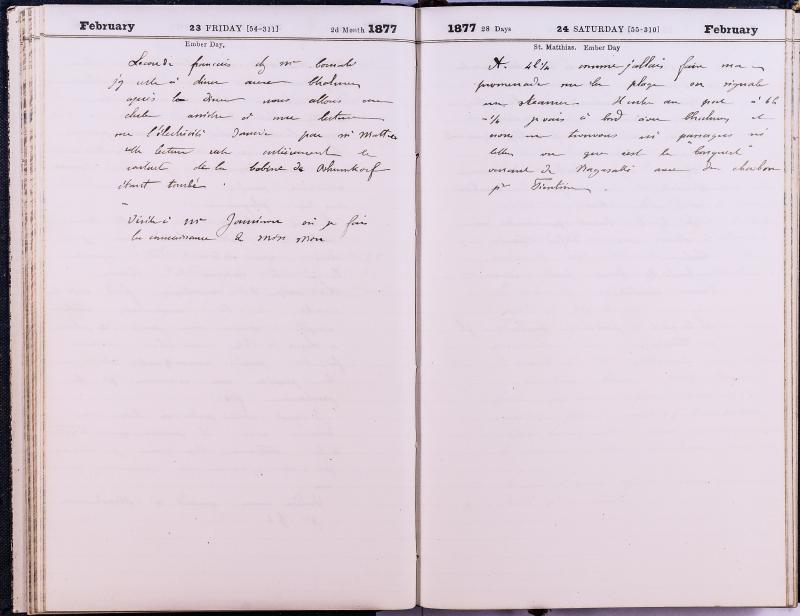 February
23 FRIDAY [54-311]
2d Month 1877
Ember Day.
Lecon de francais chez mr
j'y reste à diner avec
après le diner nous allons au
club assister à une lecture
sur l'électricité donnée par mr
cette lecture rate entièrement le
de la bobine de Rhumkorf
étant
Visite à mr où je fais
la connaissance de miss
1877 28 Days
24 SATURDAY [55-310]
February
St. Matthias. Ember Day
A 4h ¼ comme j'allais faire ma
promenade sur la plage on signale
un steamer. Il entre au port à 6h
¼ je vais à bord avec et
nous ne trouvons ni passagers ni
lettres vu que c'est le
venant de Nagasaki avec du charbon
pr Tientsin.